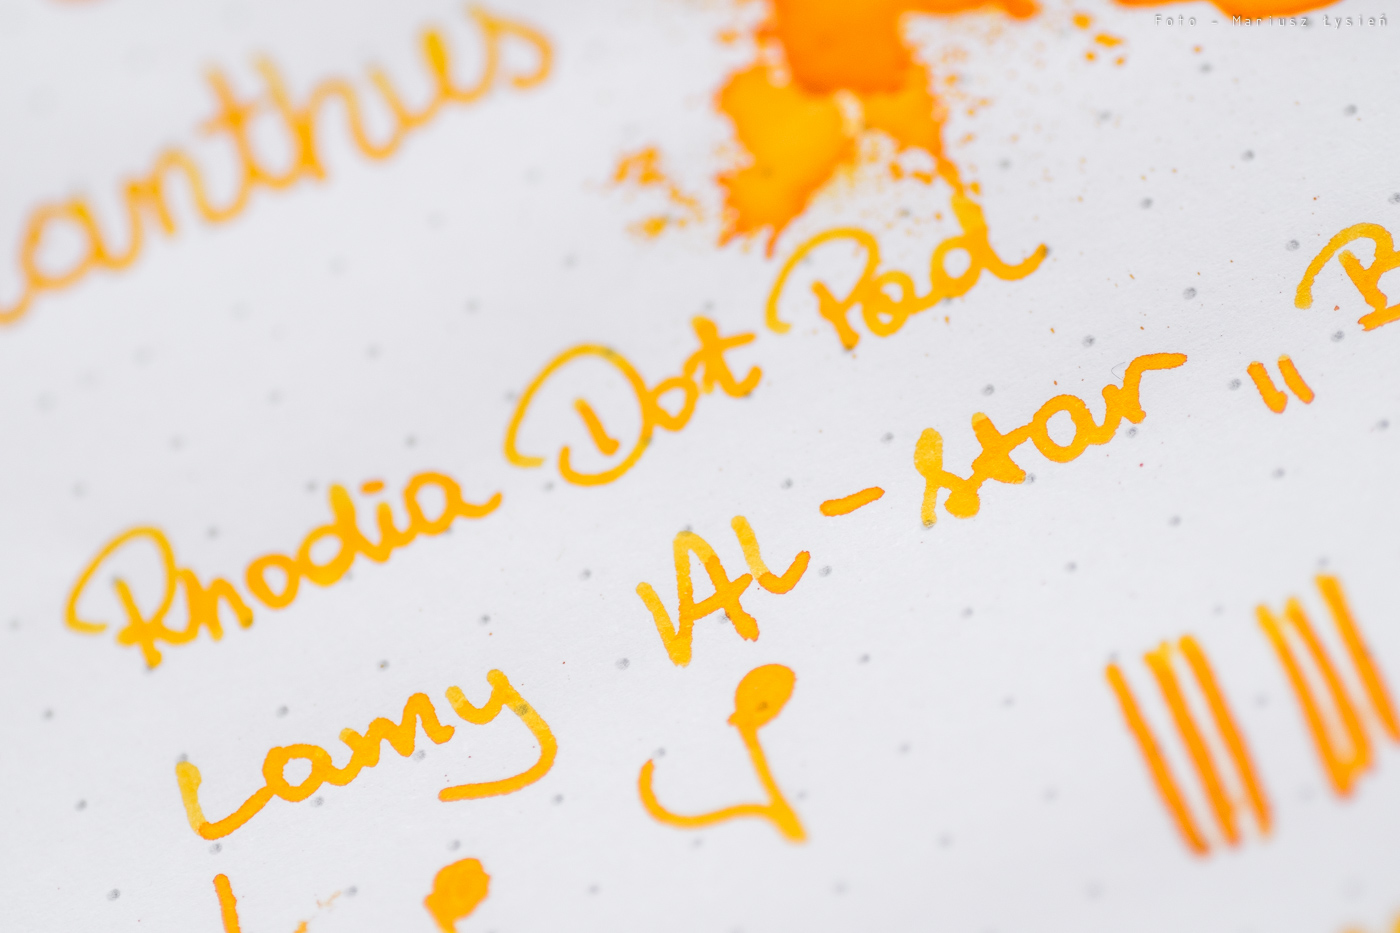 Foto - Mariusz Łysień
anthus
Rhodia Dot Pad
Lamy AL-star " B